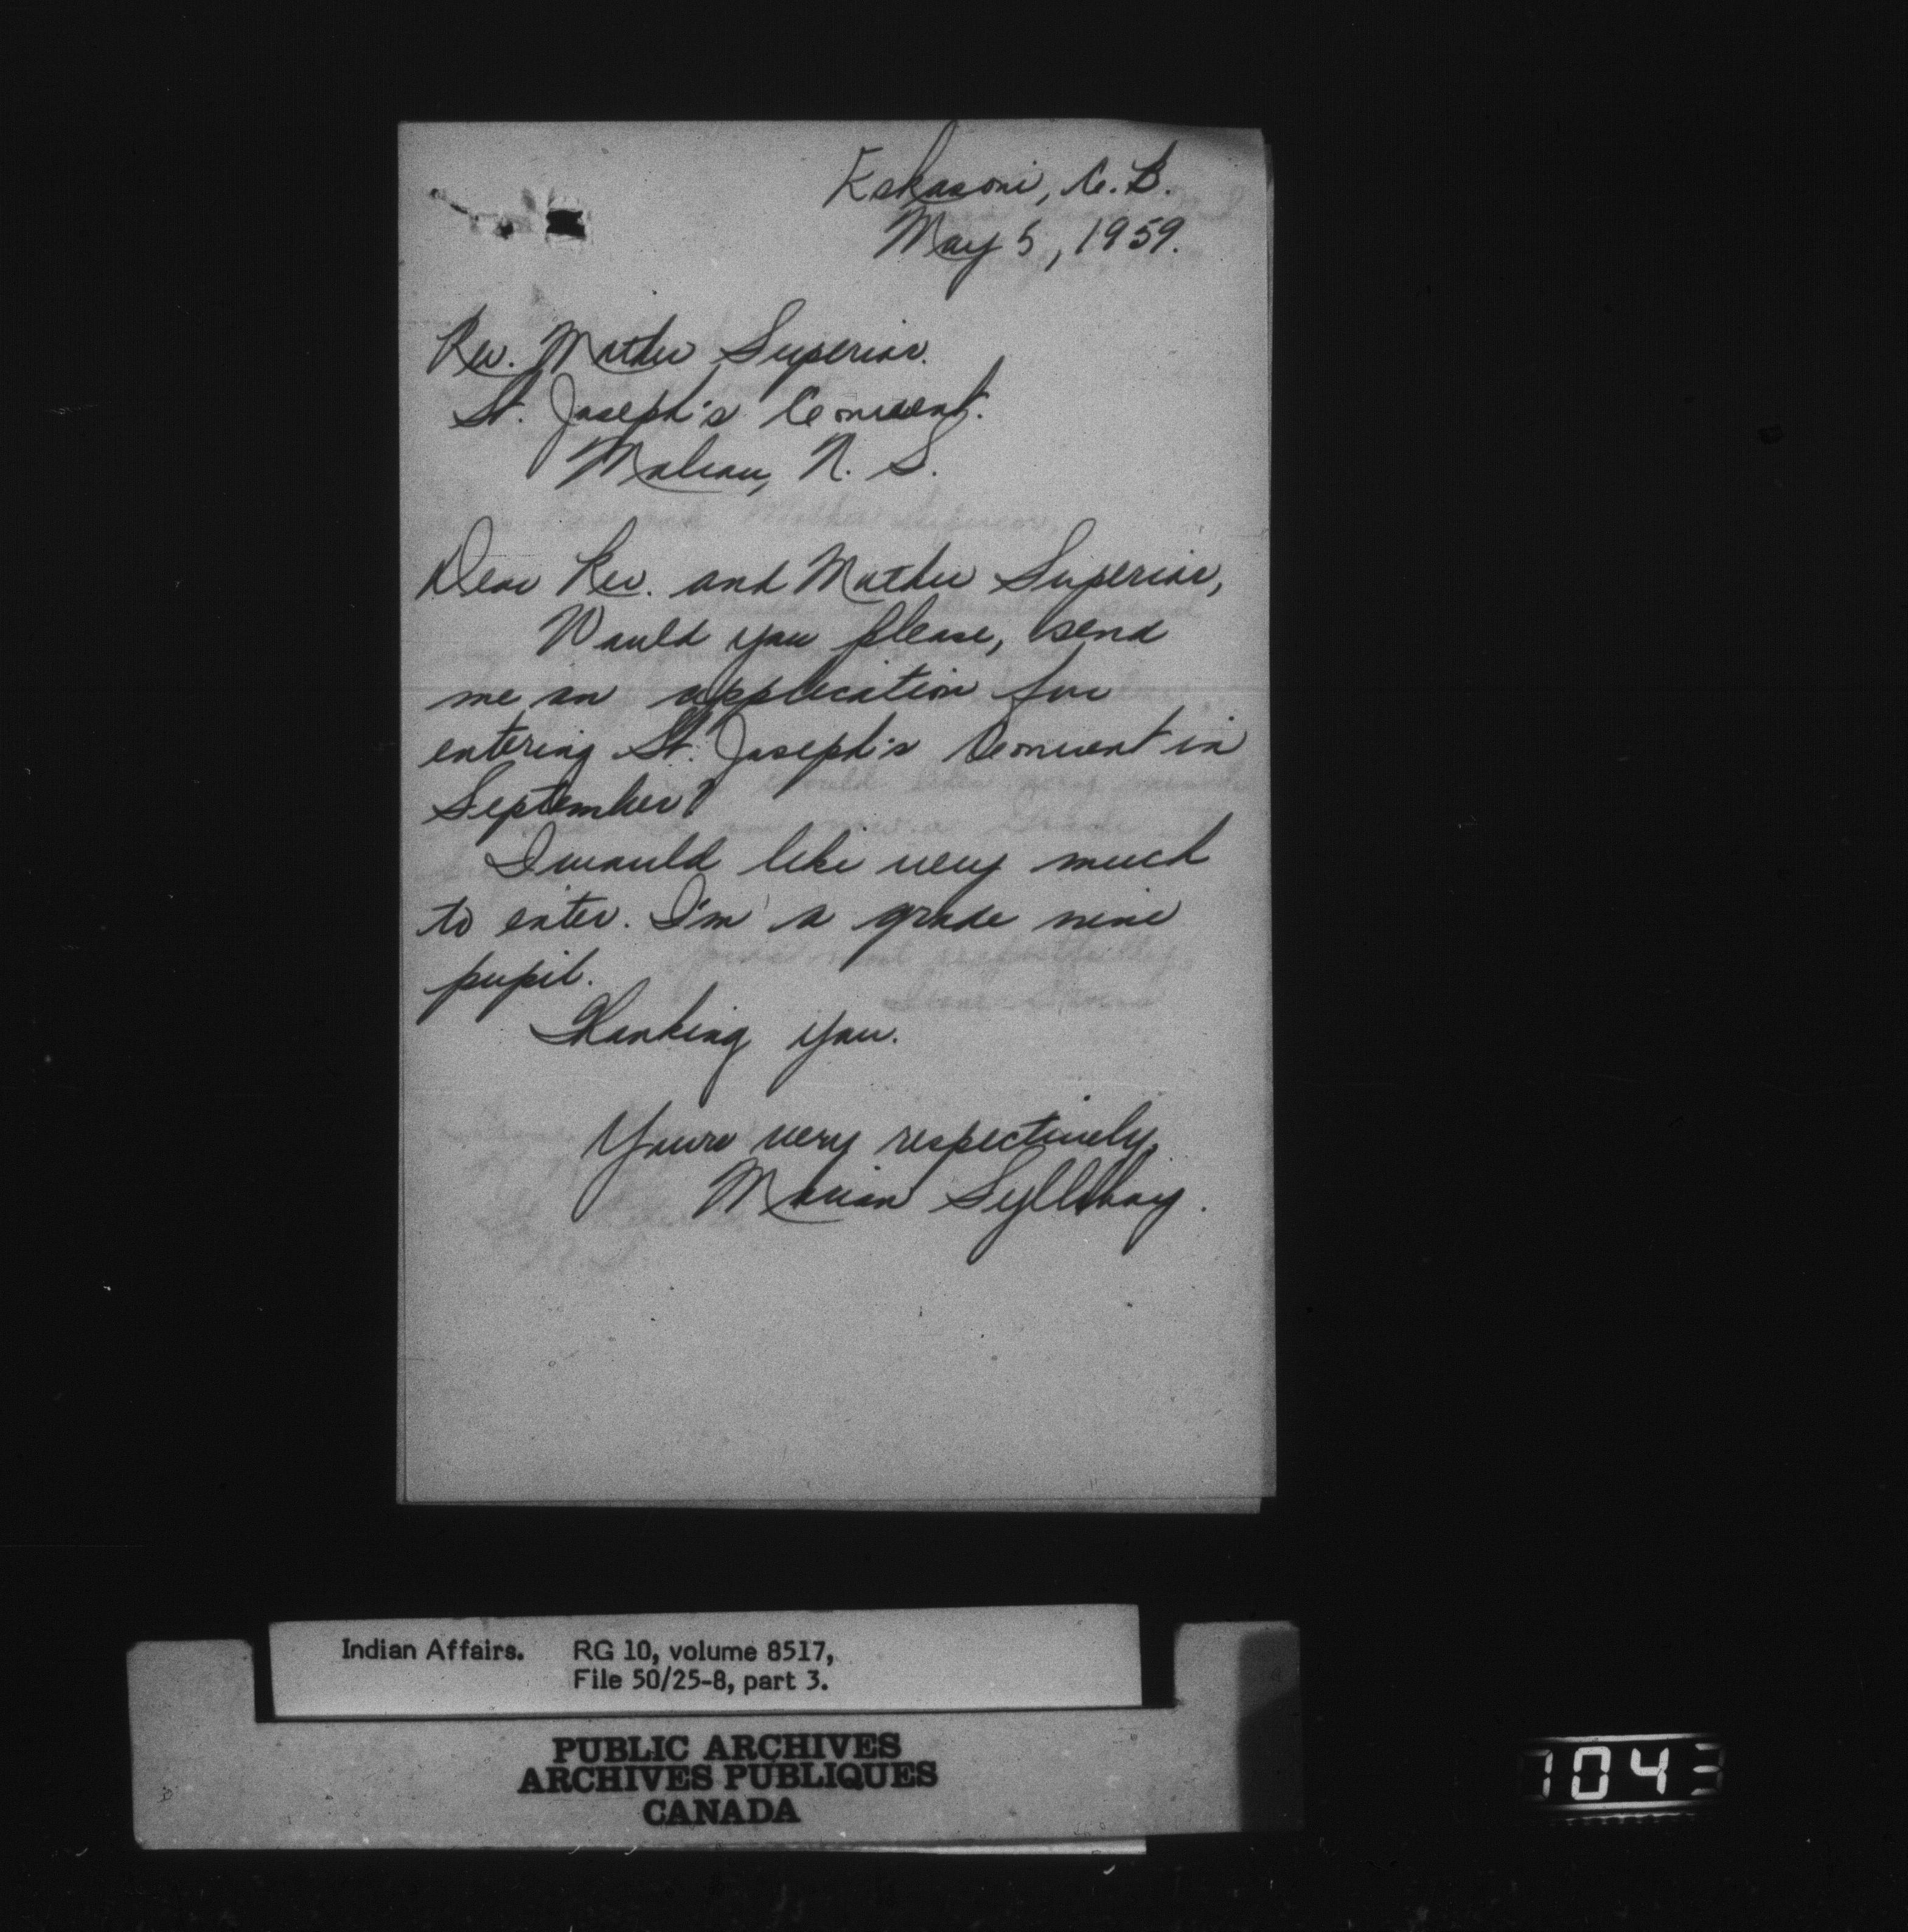 Eskasoni, C. B.
May 5, 1959.
Rev. Mother Superior.
St. Joseph's Convent.
Mabou, N. S.
Dear Rev. and Mother Superior,
Would you please, send
me an application for
entering St. Joseph's Convent in
September?
I would like very much
to enter. I'm a grade nine
pupil.
Thanking you.
Yours very respectively,
Marian Sylliboy.
Indian Affairs. RG 10, volume 8517,
File 50/25-8, part 3.
PUBLIC ARCHIVES
ARCHIVES PUBLIQUES
CANADA
1043